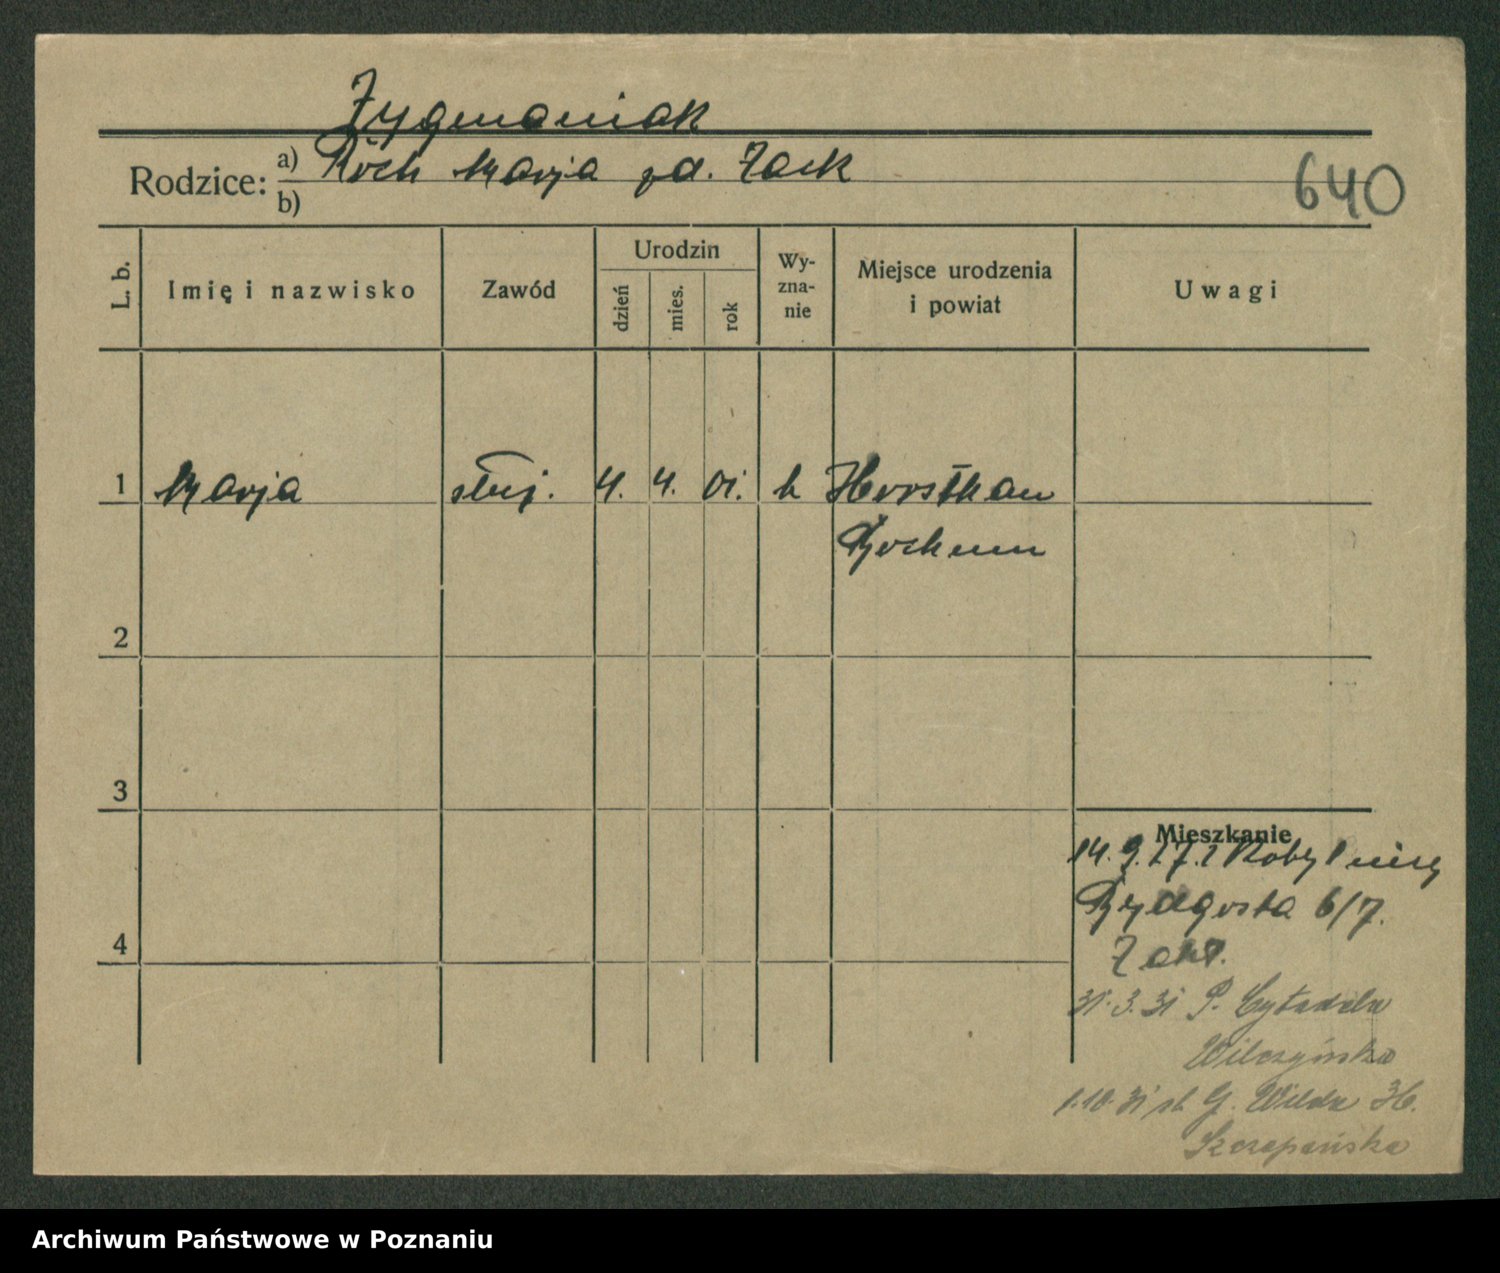 Zygmaniak
Rodzice: a) Roch Marja zd. Zack
b)
640
L. b.
Imię i nazwisko
Zawód
Urodzin
dzień
mies.
rok
Wy-
zna-
nie
Miejsce urodzenia
i powiat
Uwagi
1 Marja służ. 4. 4. 01. k
Bochum
2
3
4
Mieszkanie
14. 9. 27. z Kobylnicy
Bydgoska 6/7.
31. 3. 31 P. Cytadela
Wilczyńska
1. 10. 31 st. G. Wilda
Szczepańska
Archiwum Państwowe w Poznaniu